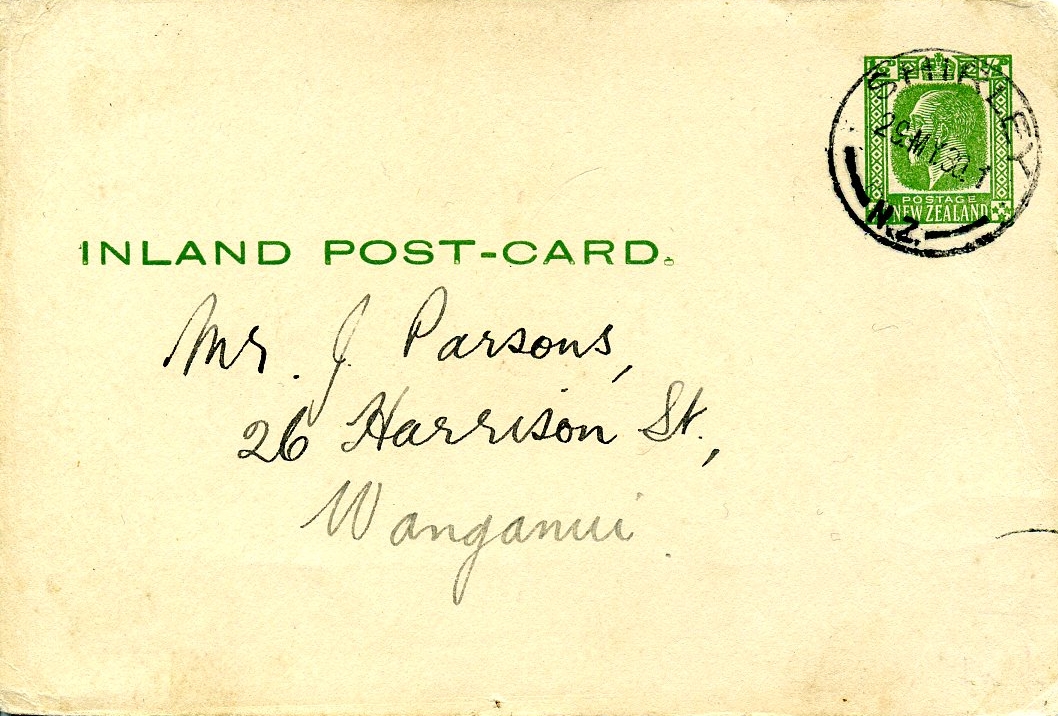 SHIRLEY
29 MY 30 1
N.Z.
POSTAGE
NEW ZEALAND
INLAND POST-CARD.
Mr. J. Parsons,
26 Harrison St.,
Wanganui.